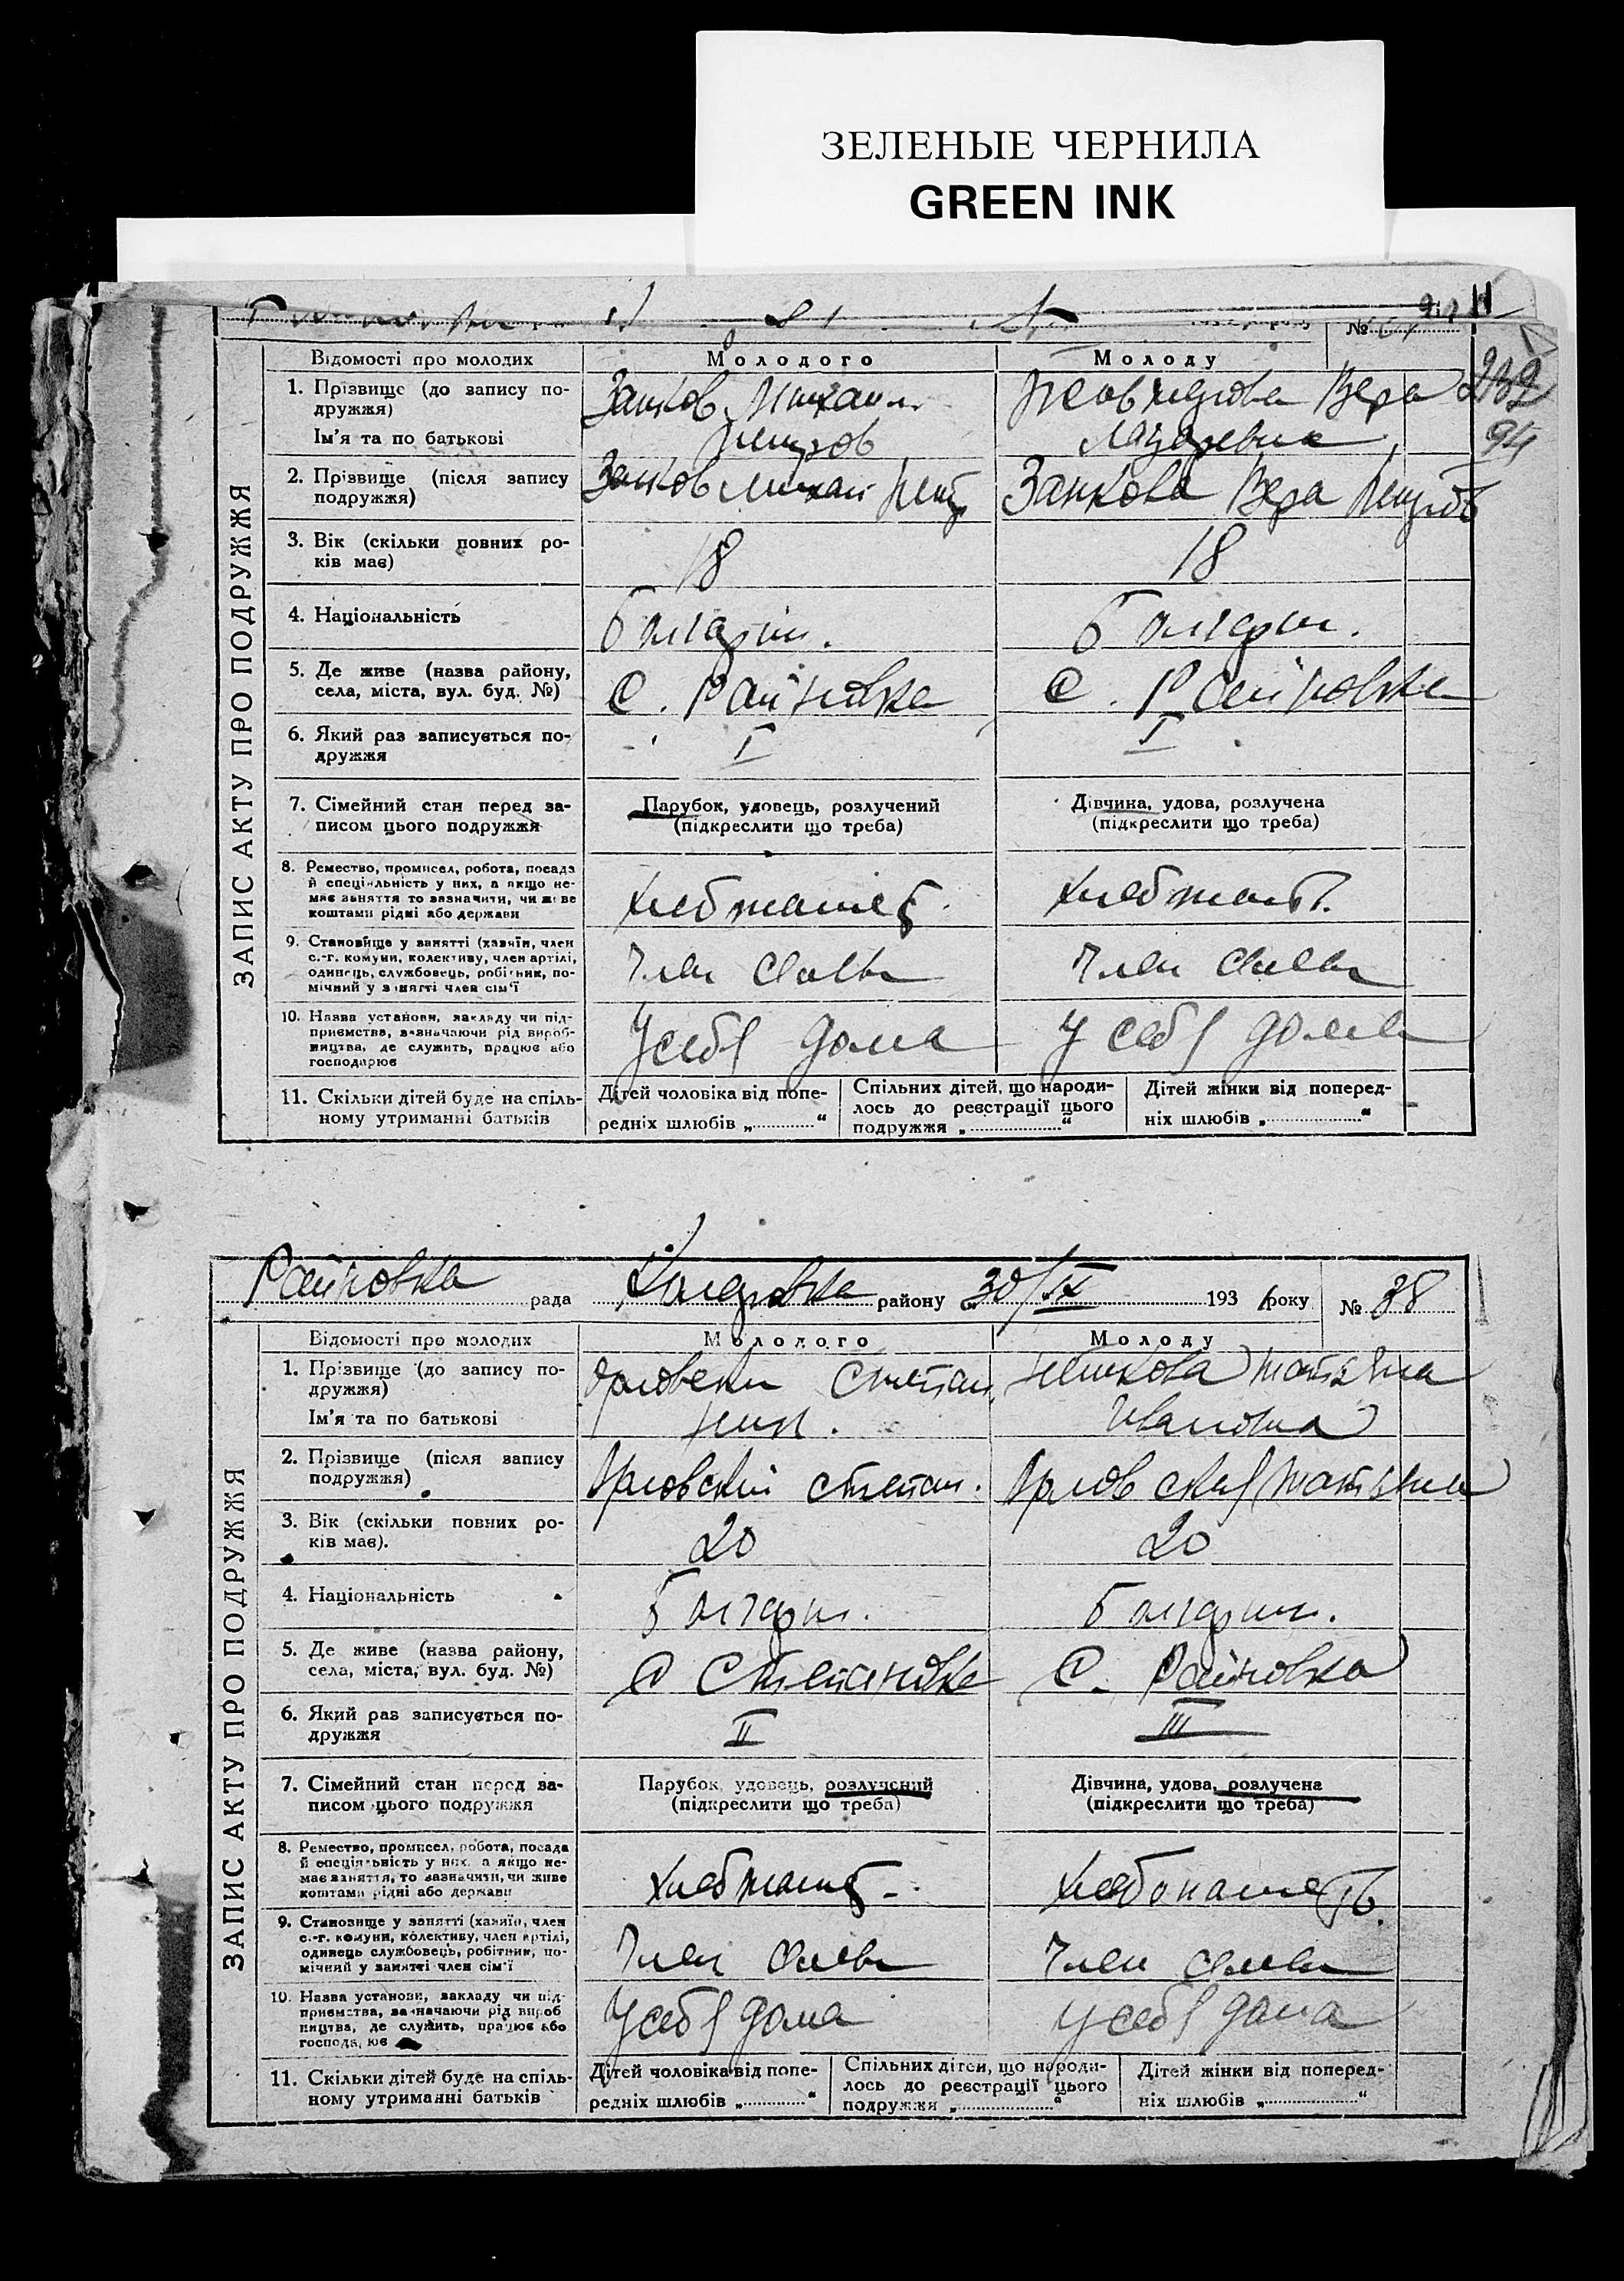 ЗЕЛЕНЫЕ ЧЕРНИЛА
GREEN INK
№
232
94
ЗАПИС АКТУ ПРО ПОДРУЖЖЯ
Відомості про молодих Молодого Молоду
1. Прізвище (до запису по-
дружжя)
Ім'я та по батькові
Занков Михаил
Петров
Вера
2. Прізвище (після запису
подружжя)
Занков Михаил Петр
Занкова Вера Петров
3. Вік (скільки повних ро-
ків має)
18 18
4. Національність
болгарин. болгарин.
5. Де живе (назва району,
села, міста, вул. буд. №)
С. Райновка С. Райновка
6. Який раз записується по-
дружжя
I I
7. Сімейний стан перед за-
писом цього подружжя
Парубок, удовець, розлучений
(підкреслити що треба)
Дівчина, удова, розлучена
(підкреслити що треба)
8. Ремество, промисел, робота, посада
й спеціальність у них, а якщо не-
має заняття то зазначити, чи живе
коштами рідні або держави
9. Становище у занятті (хазяїн, член
с.-г. комуни, колективу, член артілі,
одинець, службовець, робітник, по-
мічний у занятті член сім'ї
Член Член
10. Назва установи, закладу чи під-
приємства, зазначаючи рід вироб-
ництва, де служить, працює або
господарює
У себя дома У себя дома
11. Скільки дітей буде на спіль-
ному утриманні батьків
Дітей чоловіка від попе-
редніх шлюбів „ “
Спільних дітей, що народи-
лось до реєстрації цього
подружжя „ “
Дітей жінки від поперед-
ніх шлюбів „ “
Райновка рада району „30/IX 1931 року № 38
ЗАПИС АКТУ ПРО ПОДРУЖЖЯ
Відомості про молодих Молодого Молоду
1. Прізвище (до запису по-
дружжя)
Ім'я та по батькові
Степан
Татьяна
Ивановна
2. Прізвище (після запису
подружжя)
Орловский Степан.
Орловская Татьяна
3. Вік (скільки повних ро-
ків має).
20 20
4. Національність
болгарин. болгарин.
5. Де живе (назва району,
села, міста, вул. буд. №)
С Степановка С. Райновка
6. Який раз записується по-
дружжя
II III
7. Сімейний стан перед за-
писом цього подружжя
Парубок, удовець, розлучений
(підкреслити що треба)
Дівчина, удова, розлучена
(підкреслити що треба)
8. Ремество, промисел, робота, посада
й спеціальність у них, а якщо не-
має заняття, то зазначити, чи живе
коштами рідні або держави
9. Становище у занятті (хазяїн, член
с.-г. комуни, колективу, член артілі,
одинець службовець, робітник, по-
мічний у занятті член сім'ї
Член Член
10. Назва установи, закладу чи під-
приємства, зазначаючи рід вироб
ництва, де служить, працює або
господарює
У себя дома У себя дома
11. Скільки дітей буде на спіль-
ному утриманні батьків
Дітей чоловіка від попе-
редніх шлюбів „ “
Спільних дітей, що народи-
лось до реєстрації цього
подружжя „ “
Дітей жінки від поперед-
ніх шлюбів „ “